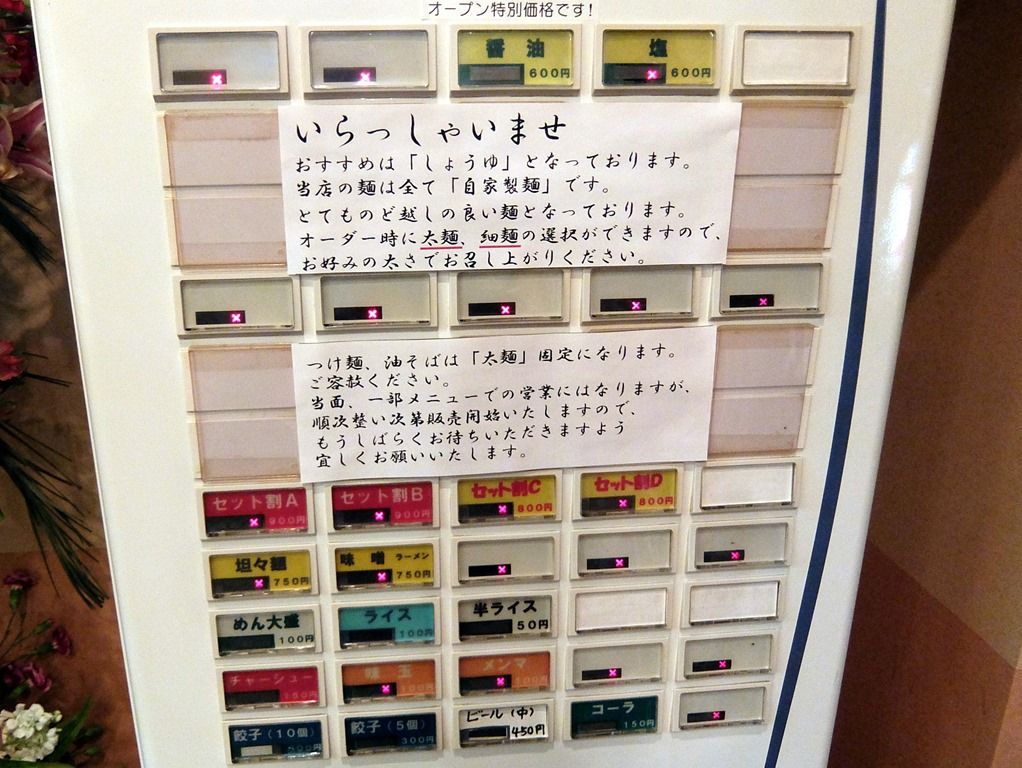 オープン特別価格です!
醤油
600円
塩
600円
いらっしゃいませ
おすすめは「しょうゆ」となっております。
当店の麺は全て「自家製麺」です。
とてものど越しの良い麺となっております。
オーダー時に太麺、細麺の選択ができますので、
お好みの太さでお召し上がりください。
つけ麺、油そばは「太麺」固定になります。
ご容赦ください。
当面、一部メニューでの営業にはなりますが、
順次整い次第販売開始いたしますので、
もうしばらくお待ちいただきますよう
宜しくお願いいたします。
セット割A
900円
セット割B
900円
セット割C
800円
セット割D
800円
坦々麺
750円
味噌ラーメン
750円
めん大盛
100円
ライス
100円
半ライス
50円
チャーシュー
150円
味玉
100円
メンマ
100円
餃子(10個)
500円
餃子(5個)
300円
ビール(中)
450円
コーラ
150円